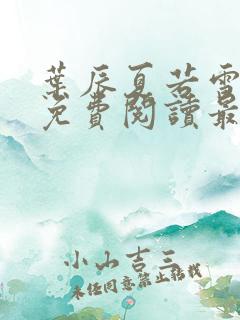 葉辰夏若雪
免費閱讀最
小山吉三
未經同意禁止轉載